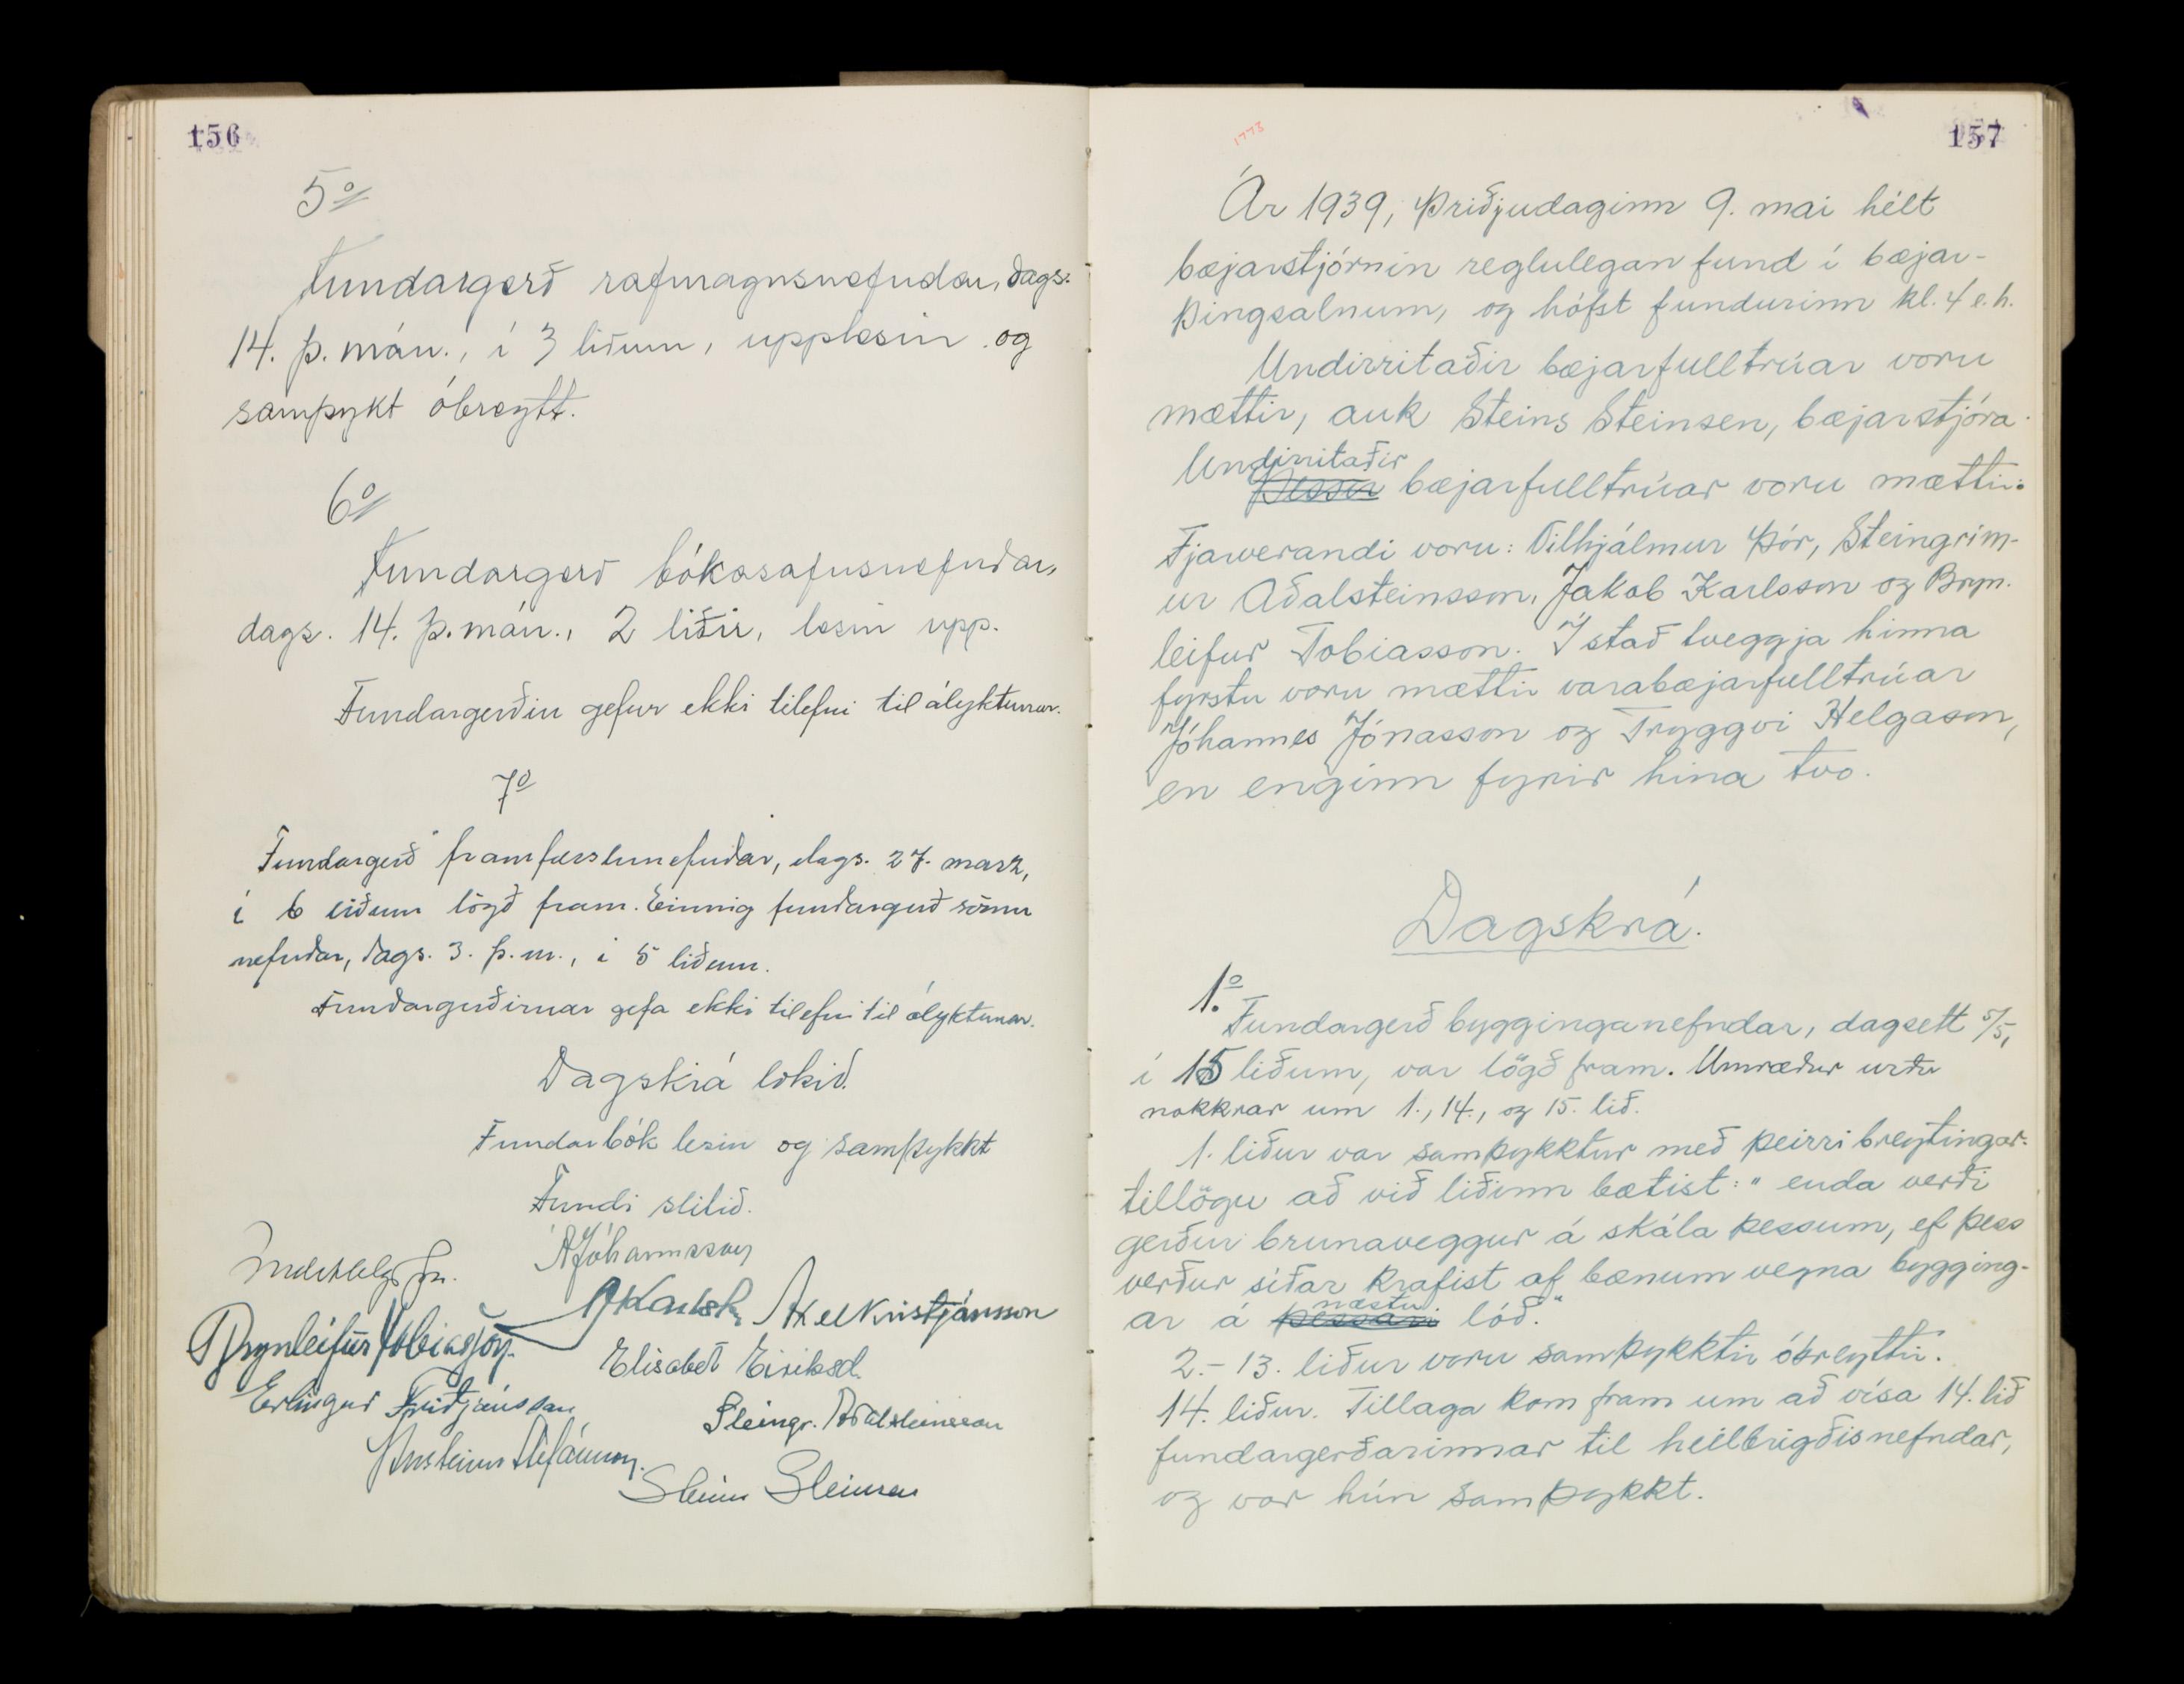 156
5º
Fundargerð rafmagnsnefndar, dags.
14. þ. mán., í 3 liðum, upplesin og
samþykt óbreytt.
6º
Fundargerð bókasafnsnefndar,
dags. 14. þ. mán., 2 liðir, lesin upp.
Fundargerðin gefur ekki tilefni til ályktunar.
7º
Fundargerð framfærslunefndar, dags. 27. marz,
í 6 liðum lögð fram. Einnig fundargerð sömu
nefndar, dags. 3. þ. m., í 5 liðum.
Fundargerðirnar gefa ekki tilefni til ályktunar.
Dagskrá lokið.
Fundarbók lesin og samþykkt
Fundi slitið.
Á Jóhannsson
Indr. Helgas.
J Karlss. Axel Kristjánsson
Brynleifur Tobiasson
Elisabet Eiríksd.
Erlingur Friðjónsson
Steingr. Aðalsteinsson
Þorsteinn Stefánsson.
Steinn Steinsen
1773
157
Ár 1939, Þriðjudaginn 9. mai hélt
bæjarstjórnin reglulegan fund í bæjar-
þingsalnum, og hófst fundurinn kl. 4 e.h.
Undirritaðir bæjarfulltrúar voru
mættir, auk Steins Steinsen, bæjarstjóra.
Undirritaðir
Þessir bæjarfulltrúar voru mættir:
Fjarverandi voru: Vilhjálmur Þór, Steingrím-
ur Aðalsteinsson, Jakob Karlsson og Bryn-
leifur Tobiasson. Í stað tveggja hinna
fyrstu voru mættir varabæjarfulltrúar
Jóhannes Jónasson og Tryggvi Helgason,
en enginn fyrir hina tvo.
Dagskrá.
1.º
Fundargerð bygginganefndar, dagsett 5/5,
í 15 liðum, var lögð fram. Umræður urðu
nokkrar um 1., 14., og 15. lið.
1. liður var samþykktur með þeirri breytingar-
tillögu að við liðinn bætist: " enda verði
gerður brunaveggur á skála þessum, ef þess
verður síðar krafist af bænum vegna bygging-
næstu
ar á þessari lóð."
2.-13. liður voru samþykktir óbreyttir.
14. liður. Tillaga kom fram um að vísa 14. lið
fundargerðarinnar til heilbrigðisnefndar,
og var hún samþykkt.